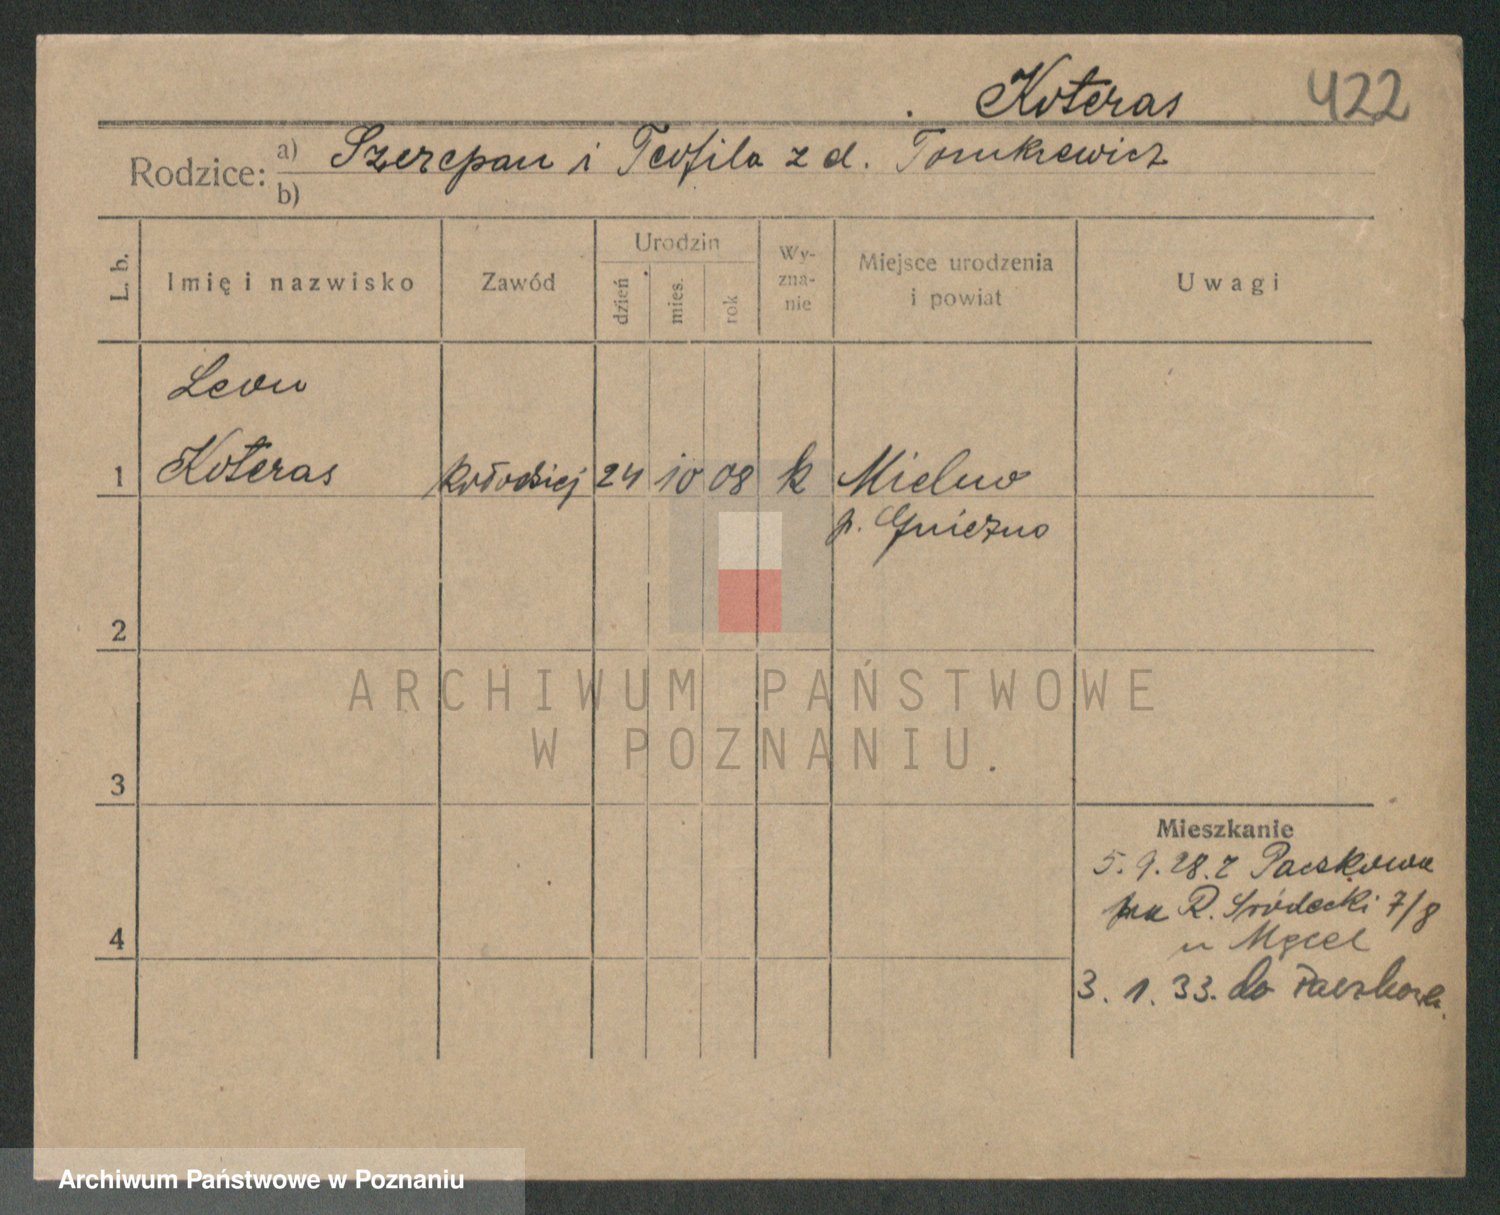 Koteras 422
Rodzice: a) Szczepan i Teofila z d. Tomkiewicz
b)
L. b. Imię i nazwisko Zawód Urodzin dzień mies. rok Wy-zna-nie Miejsce urodzenia i powiat Uwagi
Leon
1 Koteras kołodziej 24 10 08 k Mielno
p. Gniezno
2
ARCHIWUM PAŃSTWOWE
W POZNANIU
3
Mieszkanie
5. 9. 28. z Paczkowa
na R. Śródecki 7/8
4
3. 1. 33. do Paczkowa
Archiwum Państwowe w Poznaniu